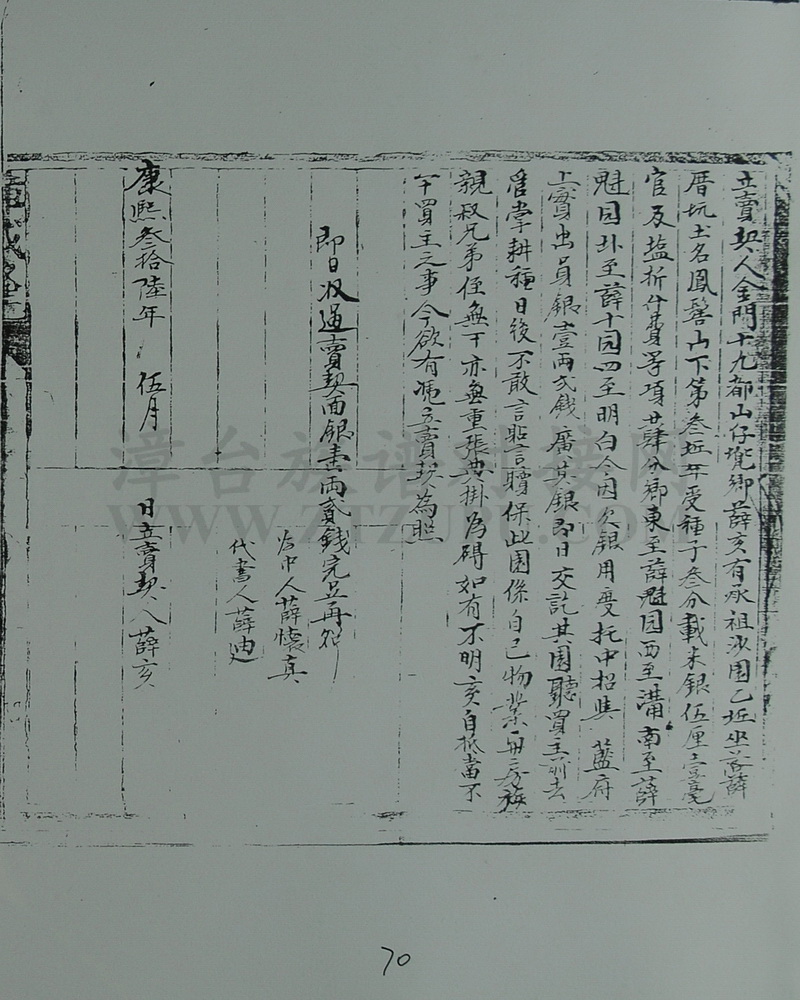 立賣契人金門十九都山仔兠鄉薛亥有承祖沙園乙坵坐落薛
厝坑土名鳳髻山下第叁坵年受種子叁分載米銀伍厘
官及塩折 等項 肆分鄉東至薛魁園西至溝南至薛
魁园北至薛十园四至明白今因欠銀用度托中招與 蓝府
上賣出員銀壹両弍錢 廣其銀即日交訖其園聽買主前去
管掌耕種日後不敢言貼言贖保此園係自己物業與房族
親叔兄弟侄無干亦無重張典掛為碍如有不明亥自抵當不
干買主之事今欲有憑立賣契為炤
即日收過賣契面銀壹両貳錢完足再炤
為中人薛懷真
代書人薛迪
康熙叁拾陸年 伍月 日立賣契人薛亥
漳台族谱对接网
WWW.ZTZUPU.COM
70